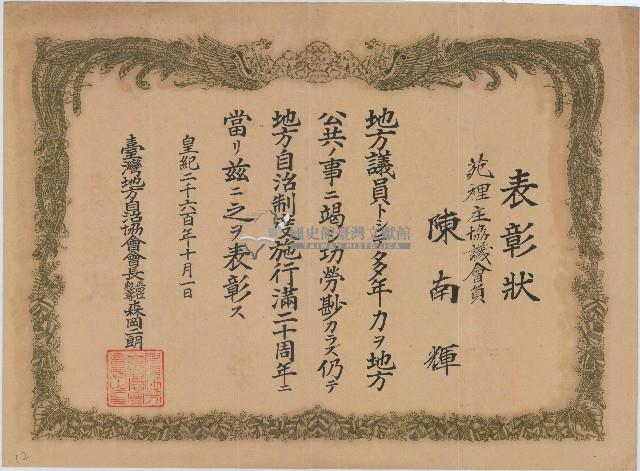 表彰狀
苑裡庄協議會員
陳南輝
地方議員トシテ多年力ヲ地方
公共ノ事ニ竭シ功勞尠カラズ仍テ
地方自治制度施行滿二十周年ニ
當リ玆ニ之ヲ表彰ス
皇紀二千六百年十月一日
臺灣地方自治協會會長
森岡二朗
國史館臺灣文獻館
TAIWAN HISTORICA
12